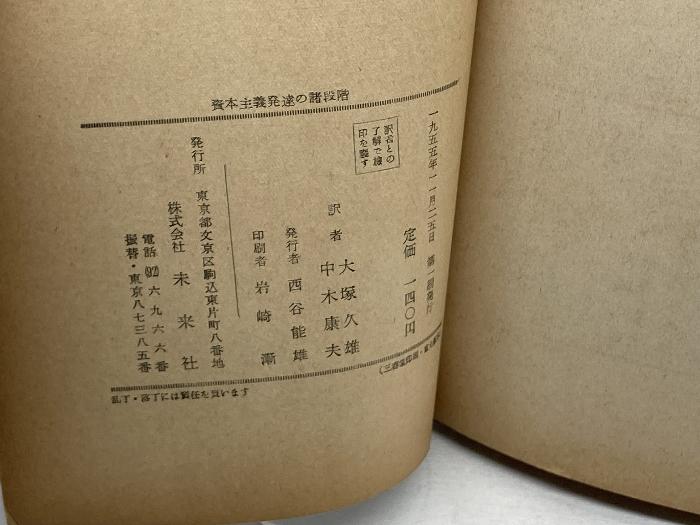 資本主義発達の諸段階
一九五五年一一月二五日 第一刷発行
定価 一四〇円
訳者との
了解で検
印を廃す
訳者
大塚久雄
中木康夫
発行者 西谷能雄
印刷者 岩崎漸
発行所
東京都文京区駒込東片町八番地
株式会社 未来社
電話(92)六九六六番
振替・東京八七三八五番
乱丁・落丁には責任を負います